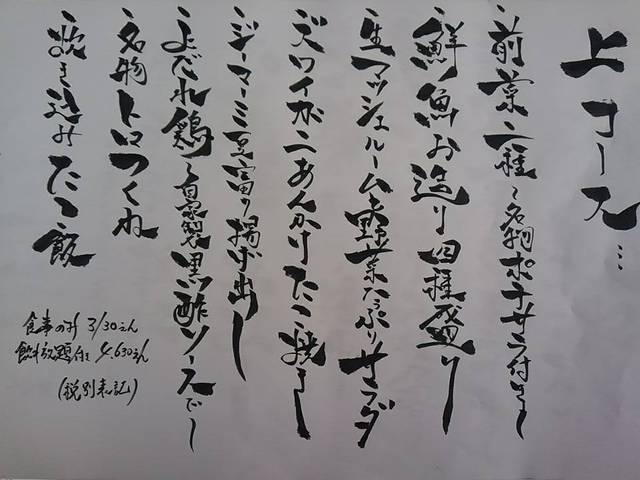 上コース…
、前菜二種〜名物ポテサラ付き〜
、鮮魚お造り四種盛り
、生マッシュルームと野菜たっぷりサラダ
、ズワイガニあんかけたこ焼き
、ジーマーミ豆富の揚げ出し
、よだれ鶏〜自家製黒酢ソースで〜
、名物トロつくね
、炊き込みたこ飯
食事のみ 3130えん
飲み放題付き 4,630えん
(税別表記)